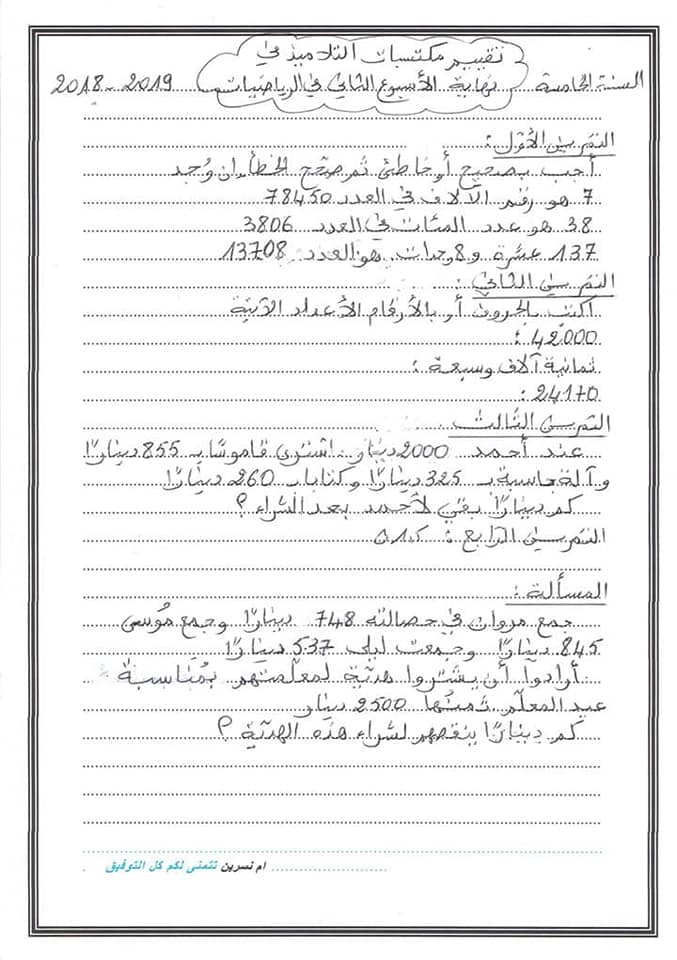 تقييم مكتسبات التلاميذ في
السنة الخامسة نهاية الأسبوع الثاني في الرياضيات 2018-2019
التمرين الأول:
أجب بصحيح أو خاطئ ثم صحّح الخطأ إن وُجد
7 هو رقم الآلاف في العدد 78450
38 هو عدد المئات في العدد 3806
137 عشرة و 8 وحدات هو العدد 13708
التمرين الثاني:
اكتب بالحروف أو بالأرقام الأعداد الآتية
42000 :
ثمانية آلاف وسبعة :
24170 :
التمرين الثالث
عند أحمد 2000 دينار. اشترى قاموسًا بـ 855 دينارًا
وآلة حاسبة بـ 325 دينارًا وكتابا بـ 260 دينارًا
كم دينارًا بقي لأحمد بعد الشراء ؟
التمرين الرابع :
المسألة :
جمع مروان في حصالته 748 دينارًا وجمع مُوسى
845 دينارًا وجمعت ليلى 537 دينارًا
أرادوا أن يشتروا هديّة لمعلّمتهم بمُناسبة
عيد المعلّم ثمنُها 2500 دينار
كم دينارًا ينقصهم لشراء هذه الهديّة ؟
ام نسرين تتمنى لكم كل التوفيق